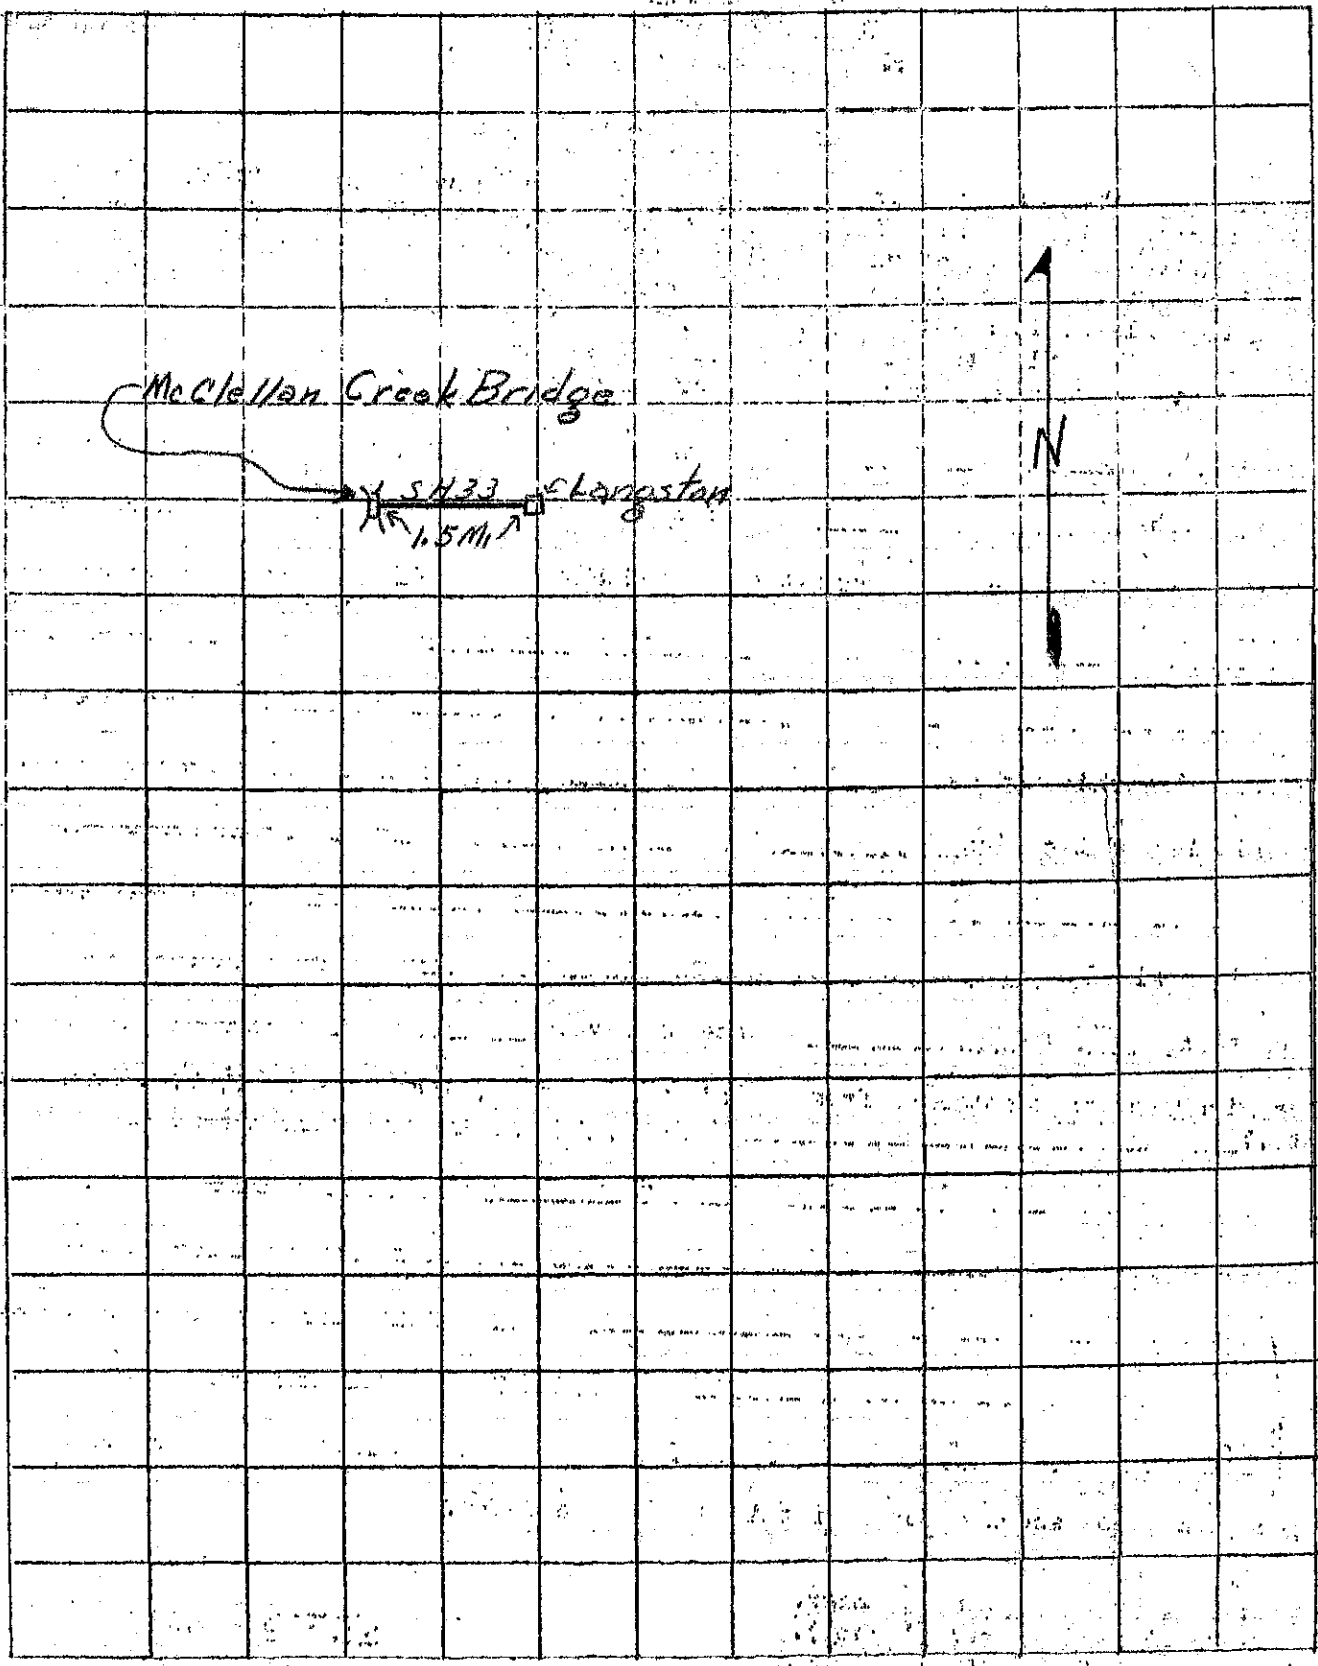 McClellan Creek Bridge
SH33
Langston
1.5 Mi
N